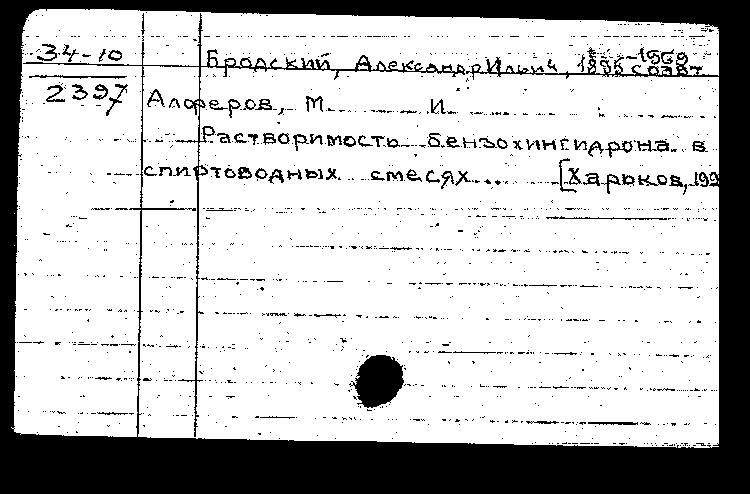 34-10
2397
Бродский, Александр Ильич, 1895-1969 соавт
Алферов, М. И.
Растворимость бензохингидрона в
спиртоводных смесях... [Харьков, 193